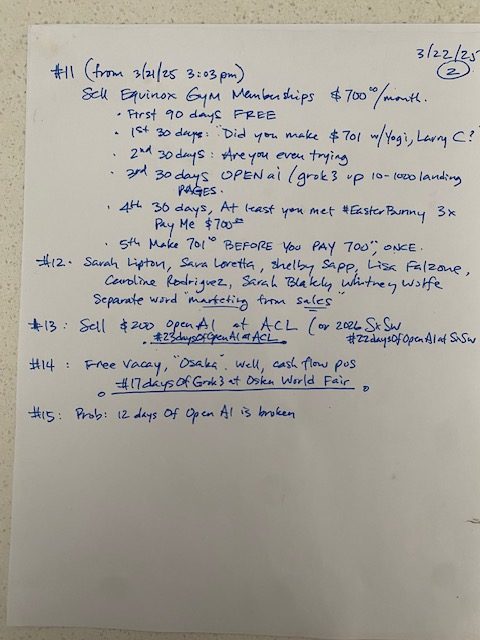 3/22/25
2
#11 (from 3/21/25 3:03pm)
Sell Equinox Gym Memberships $700⁰⁰/month.
• First 90 days FREE
• 1st 30 days: "Did you make $701 w/Yogi, Larry C?
• 2nd 30 days: Are you even trying
• 3rd 30 days OPEN ai / grok3 up 10-1000 landing
PAGES.
• 4th 30 days, At least you met #EasterBunny 3x
Pay Me $700⁰⁰
• 5th Make 701⁰⁰ BEFORE YOU PAY 700⁰⁰, ONCE.
#12. Sarah Lipton, Sara Loretta, Shelby Sapp, Lisa Falzone,
Caroline Rodriguez, Sarah Blakely Whitney Wolfe
Separate word "marketing from sales"
#13: Sell $200 Open AI at ACL (or 2026 SxSw
#23daysOfOpenAI at ACL. #22daysOfOpenAI at SxSw
#14: Free Vacay, "Osaka" well, cash flow pos
#17daysOfGrok3 at Oska World Fair
#15: Prob: 12 days Of Open AI is broken